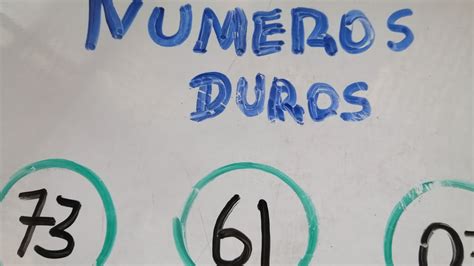 NUMEROS
DUROS
73 61